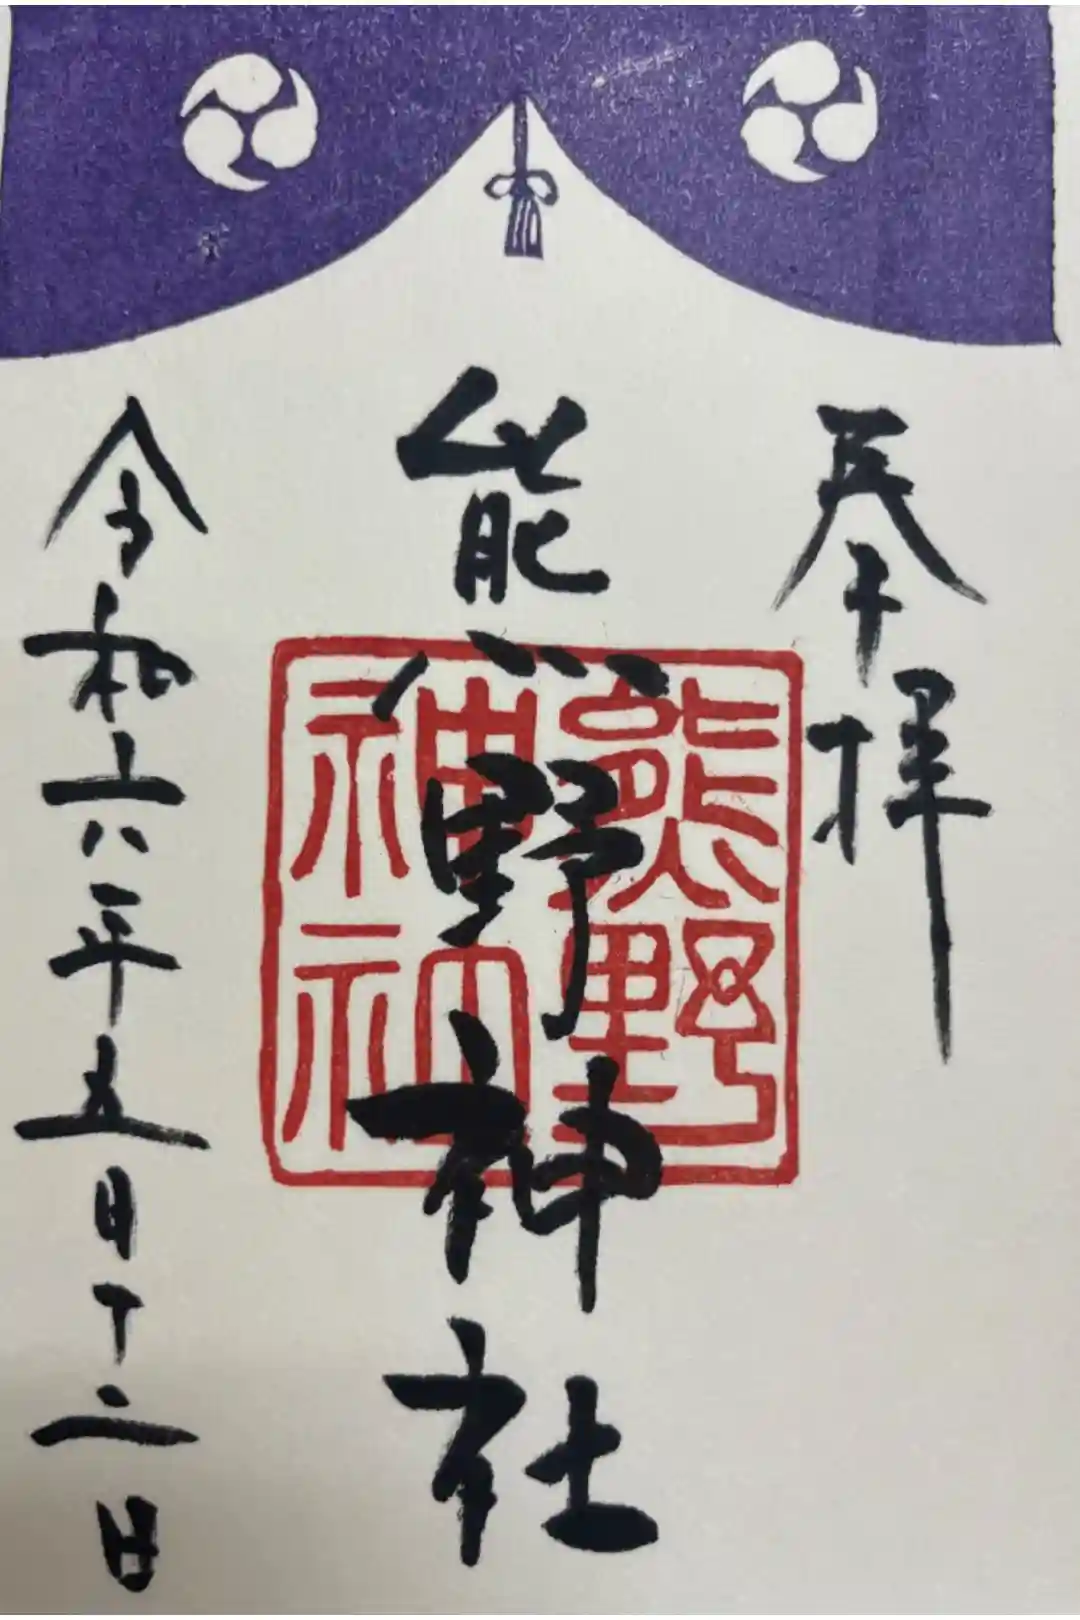 奉拝
熊野神社
熊野
神社
令和六年五月十二日